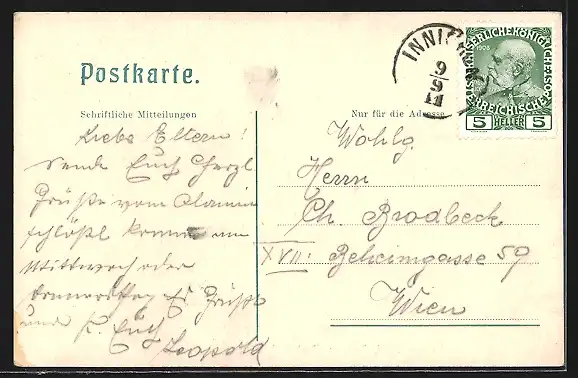 Postkarte.
Schriftliche Mitteilungen
Liebe Eltern!
Sende Euch herzl
Grüße vom
schlößl komme am
Mittwoch oder
Donnerstag Es Grüßt
und k. Euch
Leopold
INNI
9
9
11
KAISERLICHE KÖNIGLICHE
1908
ÖSTERREICHISCHE
5 HELLER 5
Nur für die Adresse
Wohlg.
Herrn
Ch. Brodbeck
XVII: Beheimgasse 59
Wien